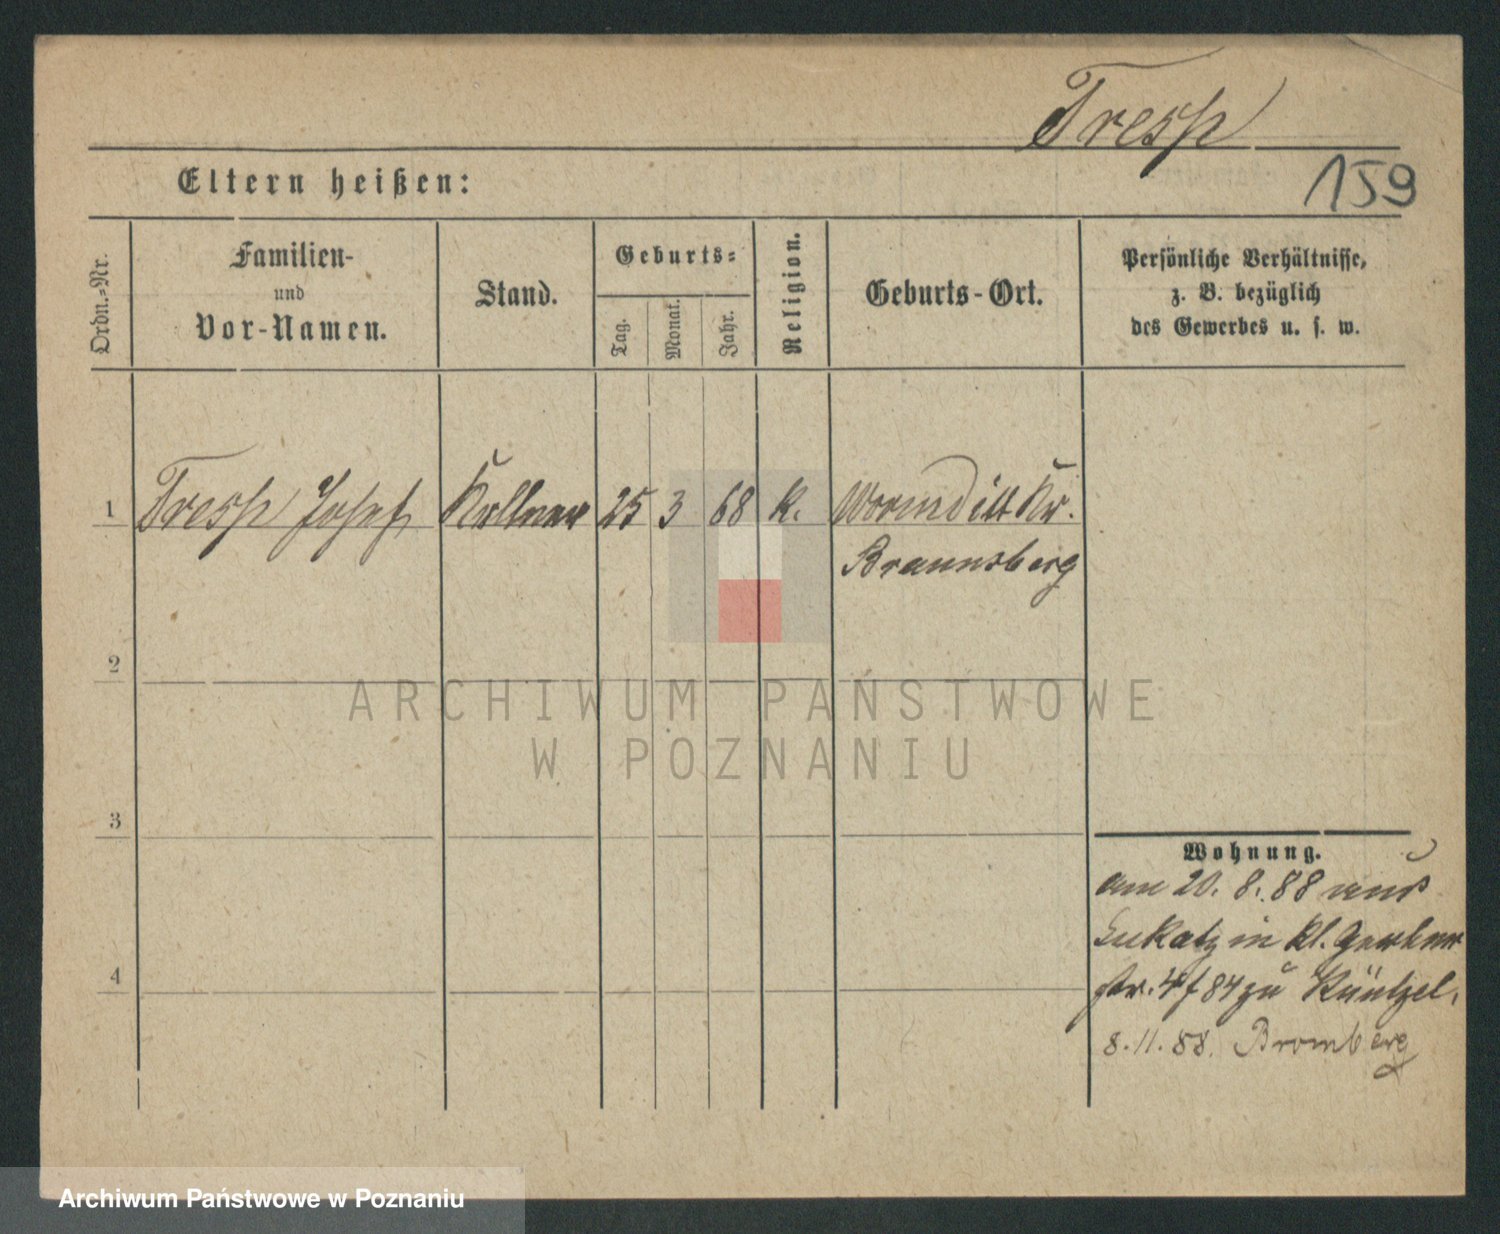 Tresp
159
Eltern heißen:
Ordn.-Nr.
Familien-
und
Vor-Namen.
Stand.
Geburts-
Tag.
Monat.
Jahr.
Religion.
Geburts-Ort.
Persönliche Verhältnisse,
z. B. bezüglich
des Gewerbes u. s. w.
1 Tresp Josef Kellner 25 3 68 k. Wormditt Kr.
Braunsberg
2
3
4
Wohnung.
am 20. 8. 88 aus
Lukatz in Kl. Gerber
str. 4 f 84 zu Küntzel.
8.11.88. Bromberg
ARCHIWUM PAŃSTWOWE
W POZNANIU
Archiwum Państwowe w Poznaniu